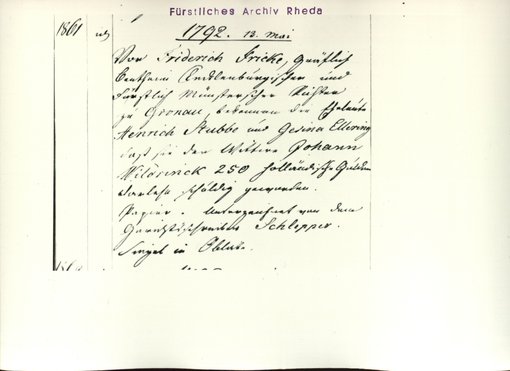 Fürstliches Archiv Rheda
1861
1792. 13. Mai
Vor Friderich Fricke, gräflich
Bentheim Tecklenburgischer und
Fürstlich Münsterscher Richter
zu Gronau, bekennen die Eheleute
Henrich Stubbe und Gesina Ellering
daß sie der Wittwe Johann
Wilderinck 250 holländische Gulden
Darlehn schuldig geworden.
Papier. Unterzeichnet von dem
Gerichtsschreiber Schlepper.
Siegel in Oblate.